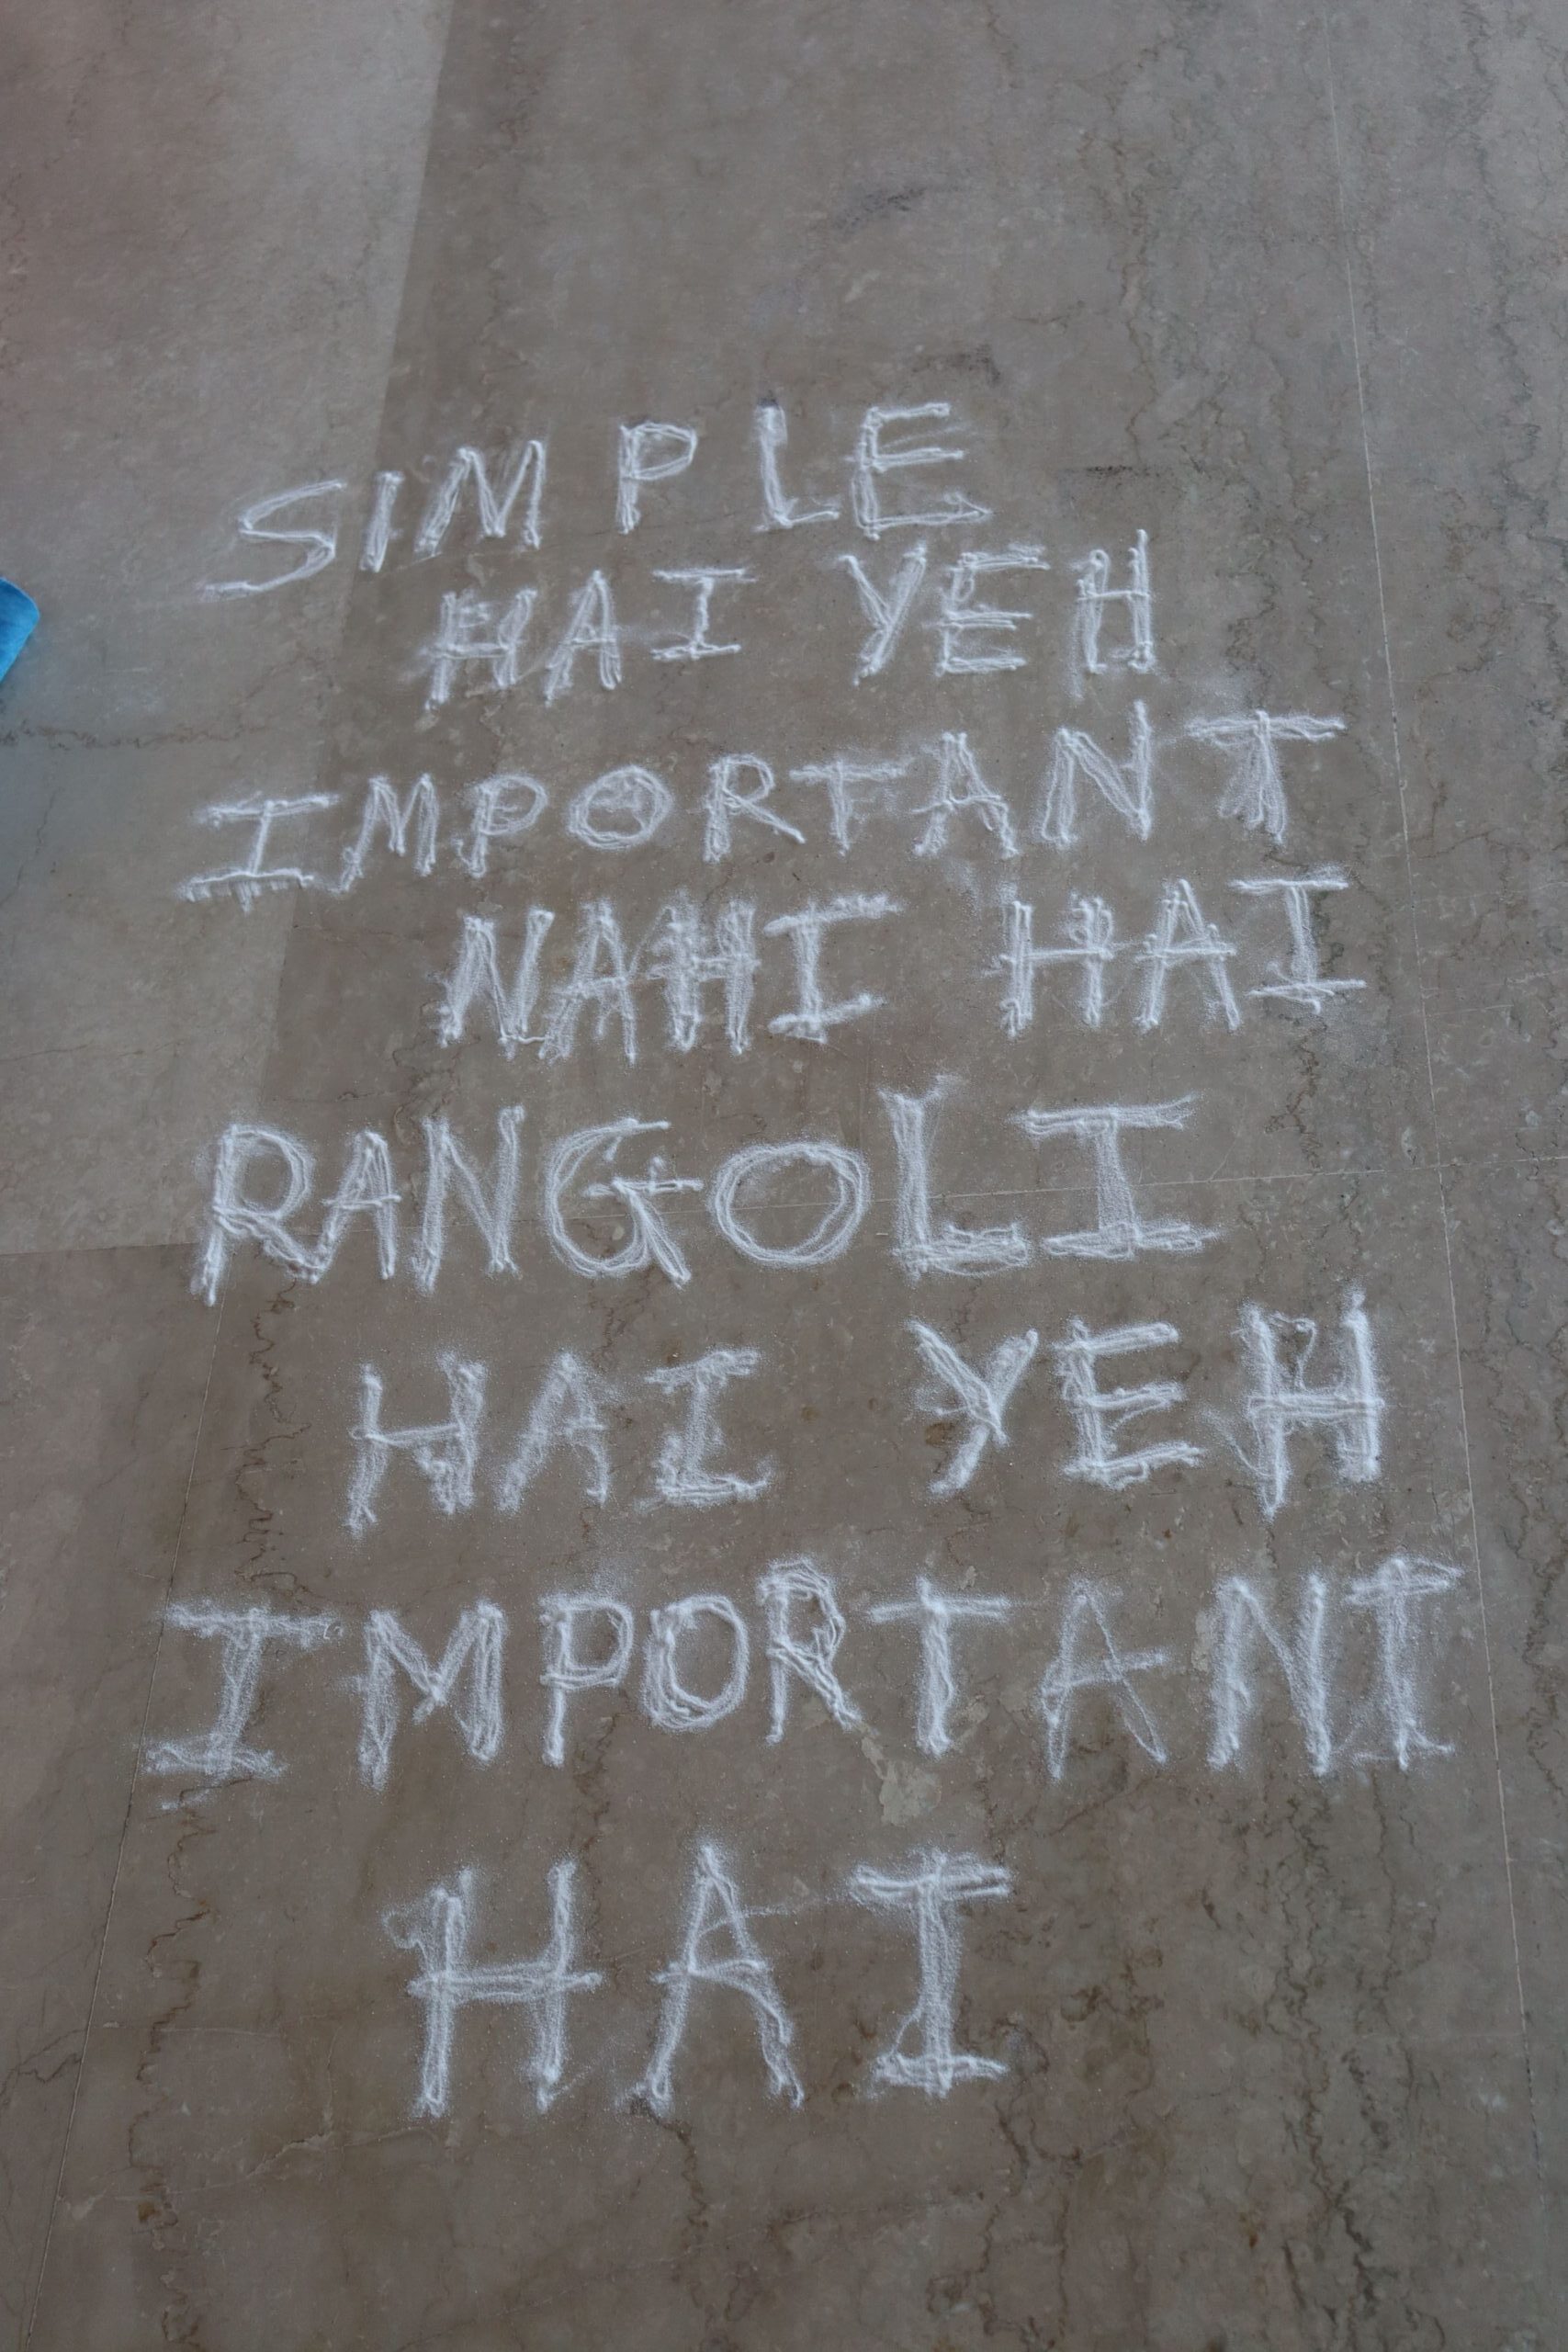 SIMPLE
HAI YEH
IMPORTANT
NAHI HAI
RANGOLI
HAI YEH
IMPORTANT
HAI